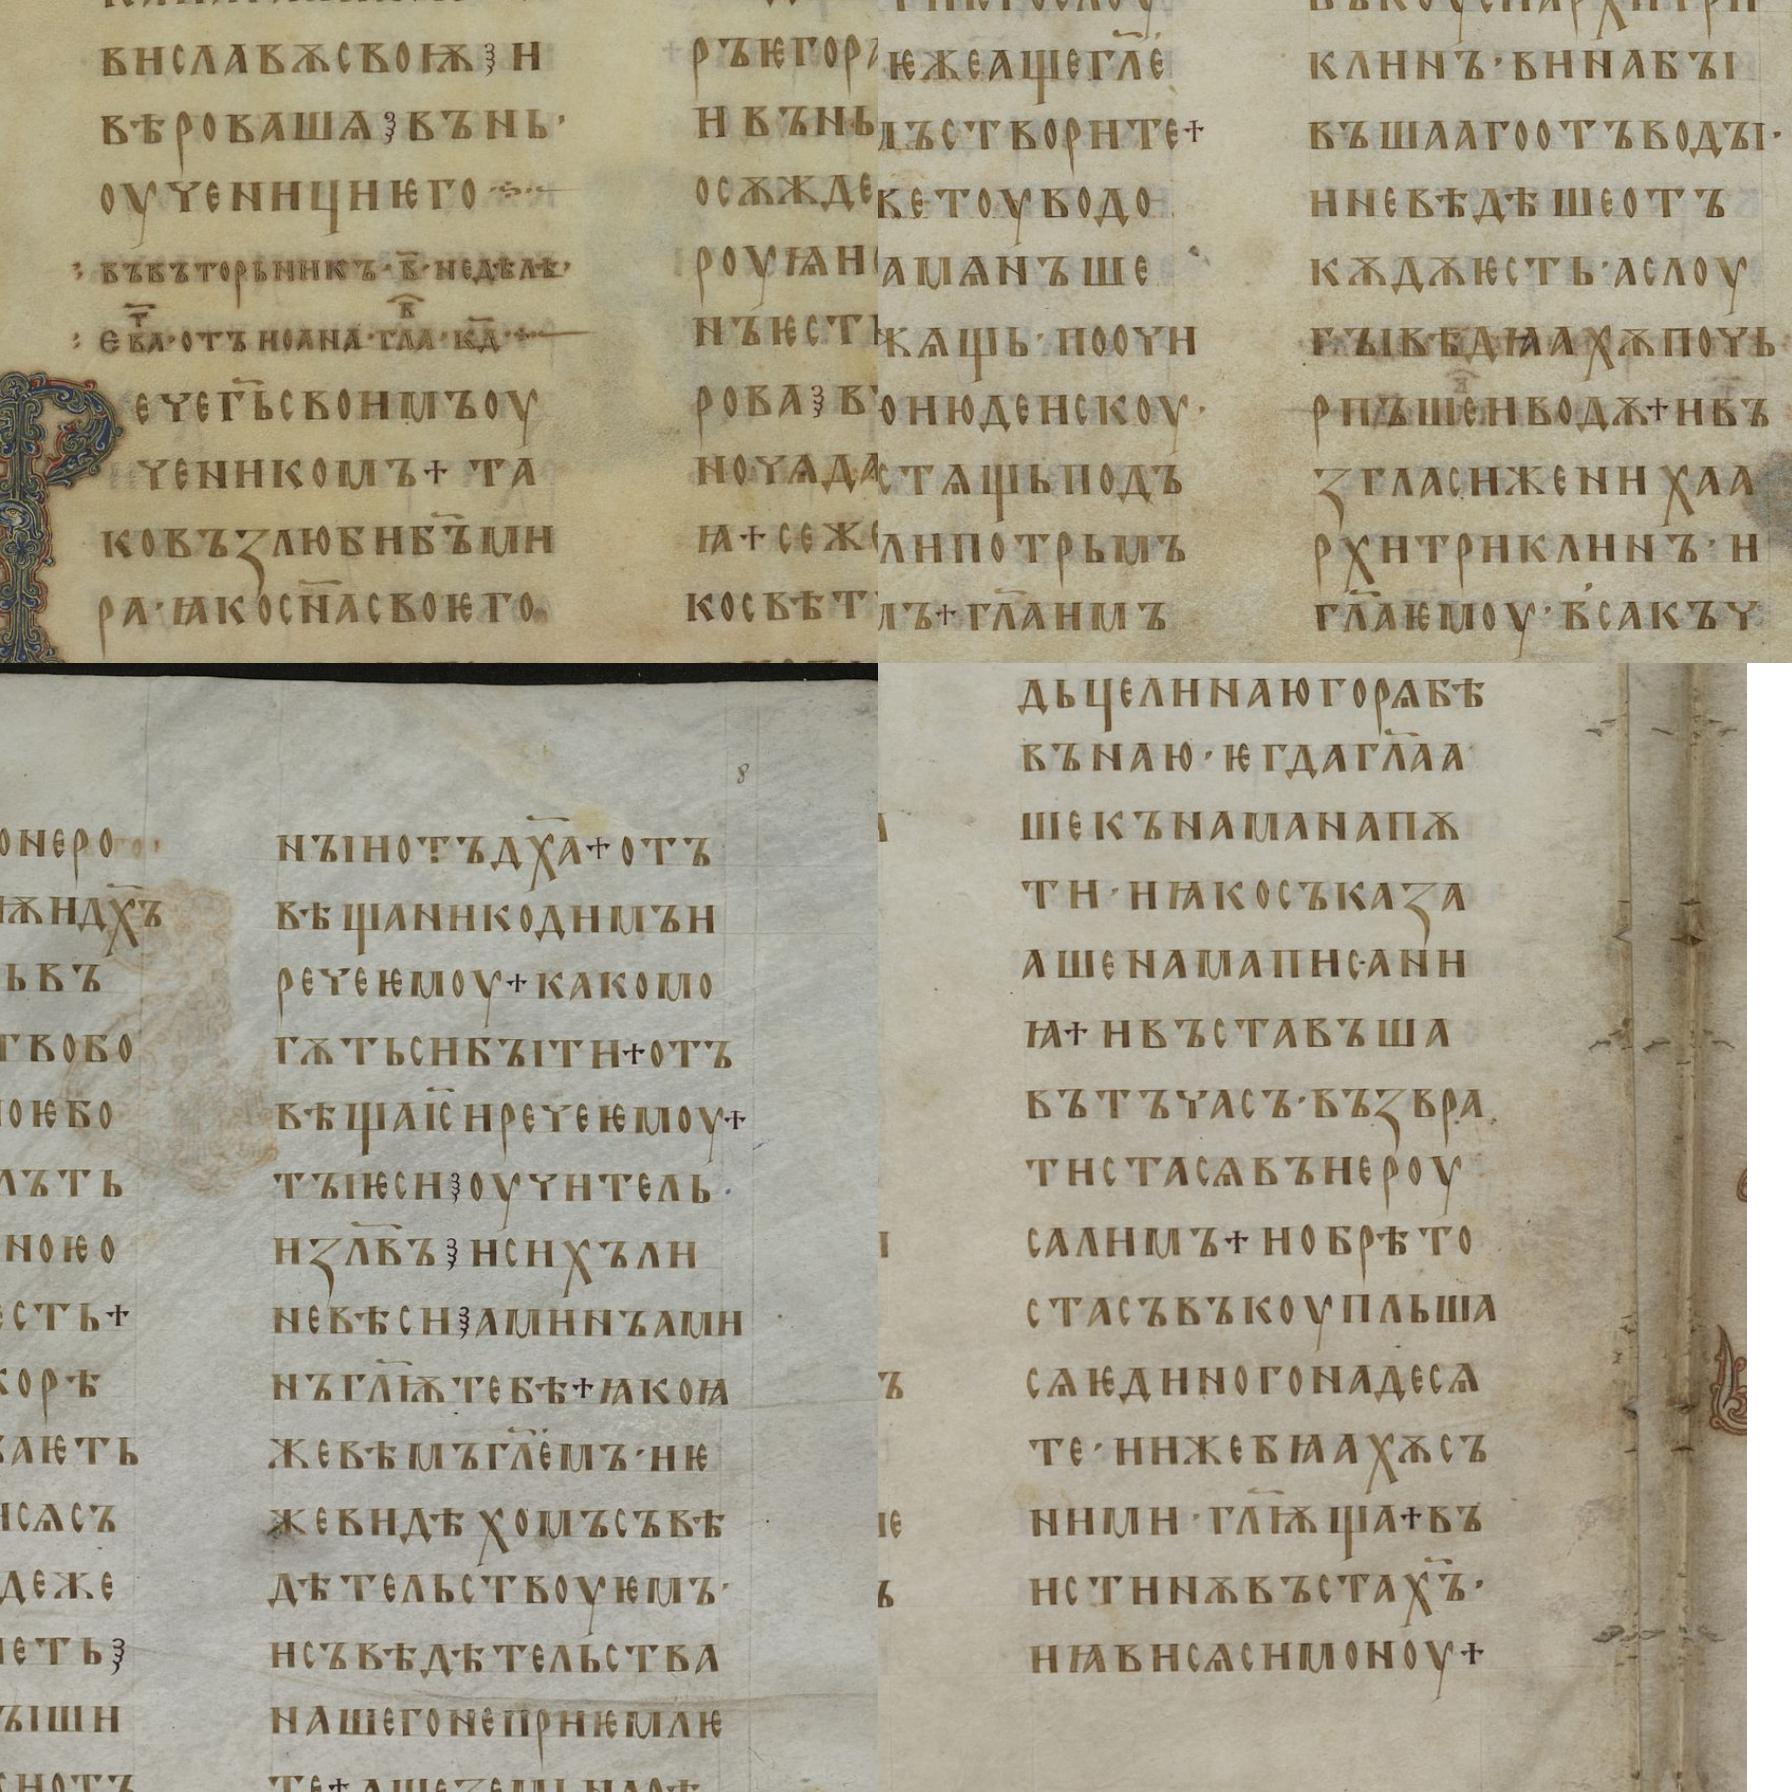 ви славѫ своѭ ꙁ и
вѣровашѧ ꙁ въ нь ·
оученици ѥго
въ въторьникъ · в҃ · недѣлѣ ·
ев҃а · отъ иоана · гл҃а · к҃д ·
ече г҃ь своимъ оу
ченикомъ + та
ко въꙁлюби б҃ъ ми
ра · ꙗко с҃на своѥго
ръ ѥгор
и въ нь
осѫжде
роуꙗи
нъ ѥсть
рова ꙁ в
ночѧда
ꙗ + се же
ко свѣт
ѥже аще гл҃е
лъ створите +
ве тоу водо
амѧнъ ше
жѧщь · по очи
ю июденскоу ·
стѧщь подъ
ли по трьмъ
лъ + гл҃а имъ
клинъ · вина бꙑ
въшааго отъ водꙑ ·
и не вѣдѣше отъ
кѫдѫ ѥсть · а слоу
гꙑ вѣдꙗахѫ почь
рпъшеи водѫ + и въ
ꙁгласи жениха а
рхитриклинъ · и
гл҃а ѥмоу · вьсакъ ч
онеро
ѭи дх҃ъ
ь въ
твобо
ноѥбо
лъть
ноѥо
есть +
корѣ
ваѥть
исѧ съ
деже
ѥть ꙁ
ꙑши
нꙑи отъ дх҃а + отъ
вѣща никодимъ и
рече ѥмоу + како мо
гѫть си бꙑти + отъ
вѣща і҃с и рече ѥмоу +
тꙑ ѥси ꙁ оучитель ·
иꙁл҃въ ꙁ и сихъ ли
не вѣси ꙁ аминъ ами
нъ гл҃ѭ тебѣ + ꙗко ꙗ
же вѣмъ гл҃емъ · и ѥ
же видѣхомъ съвѣ
дѣтельствоуѥмъ ·
и съвѣдѣтельства
нашего не приѥмлѥ
те + аще ꙁемл нарѣ
дьце лі наю горѧ бѣ
въ наю · ѥгда гл҃аа
ше къ нама на пѫ
ти · и ꙗко съкаꙁа
аше нама писани
ꙗ + и въставъша
въ тъ часъ · въꙁвра
тиста сѧ въ иероу
салимъ + и обрѣто
ста съвъкоупльша
сѧ ѥдиного на десѧ
те · и иже бꙗахѫ съ
ними · гл҃ѭща + въ
истинѫ въста х҃ъ ·
и ꙗви сѧ симоноу +